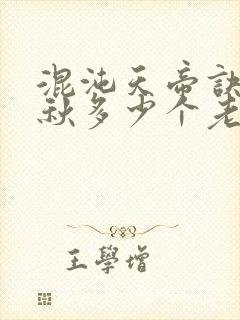 混沌天帝訣
秋多少个老
王學增